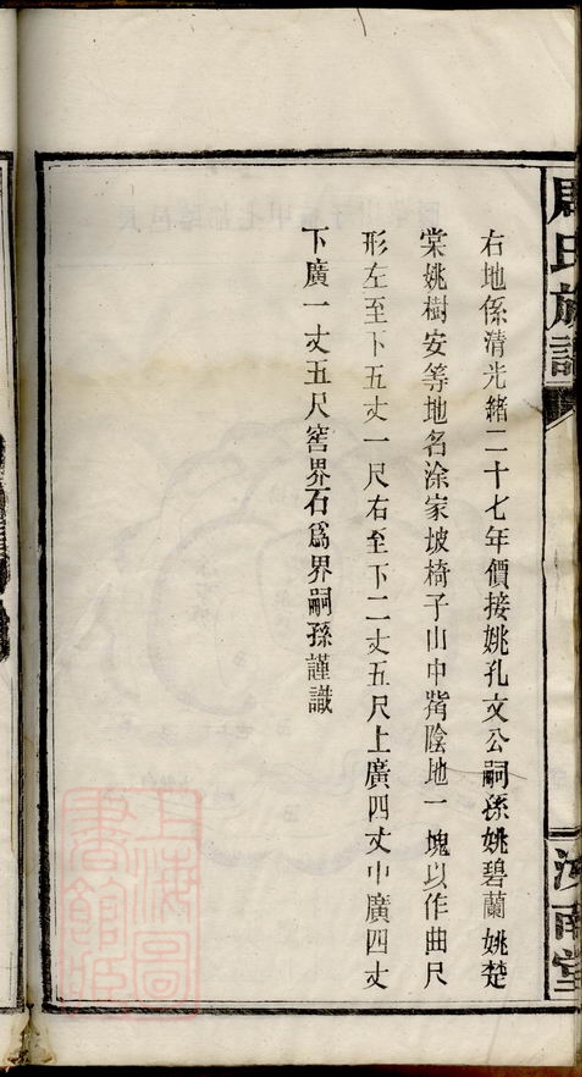 周氏族譜
右地係清光緒二十七年價接姚孔文公嗣孫姚碧蘭姚楚
棠姚樹安等地名涂家坡椅子山中嘴陰地一塊以作曲尺
形左至下五丈一尺右至下二丈五尺上廣四丈中廣四丈
下廣一丈五尺窖界石爲界嗣孫謹識
汝南堂
上海圖
書館